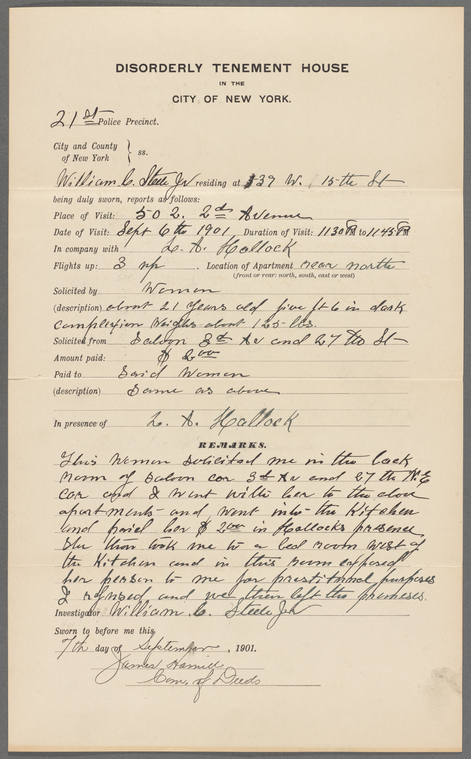 DISORDERLY TENEMENT HOUSE
IN THE
CITY OF NEW YORK.
21st Police Precinct.
City and County
of New York } ss.
William C. Steele Jr residing at 139 W. 15th St
being duly sworn, reports as follows:
Place of Visit: 502. 2nd Avenue
Date of Visit: Sept 6th 1901 Duration of Visit: 1130 PM to 1145 PM
In company with L. A. Hallock
Flights up: 3 up . Location of Apartment rear north
(front or rear: north, south, east or west)
Solicited by Woman
(description) about 21 years old five ft 6 in dark
complexion weighs about 125 lbs.
Solicited from Saloon 3rd Av and 27th St
Amount paid: $ 2 00
Paid to Said Woman
(description) Same as above
In presence of L. A. Hallock
REMARKS.
This woman solicited me in the back
room of saloon cor 3rd Av and 27th N.E
cor and I went with her to the above
apartments and went into the kitchen
and paid her $ 2 00 in Hallocks presence
She then took me to a bed room west of
the kitchen and in this room exposed
her person to me for prostitional purposes
I refused and we then left the premises.
Investigator William C. Steele Jr
Sworn to before me this
7th day of September , 1901.
James Hamill
Com. of Deeds